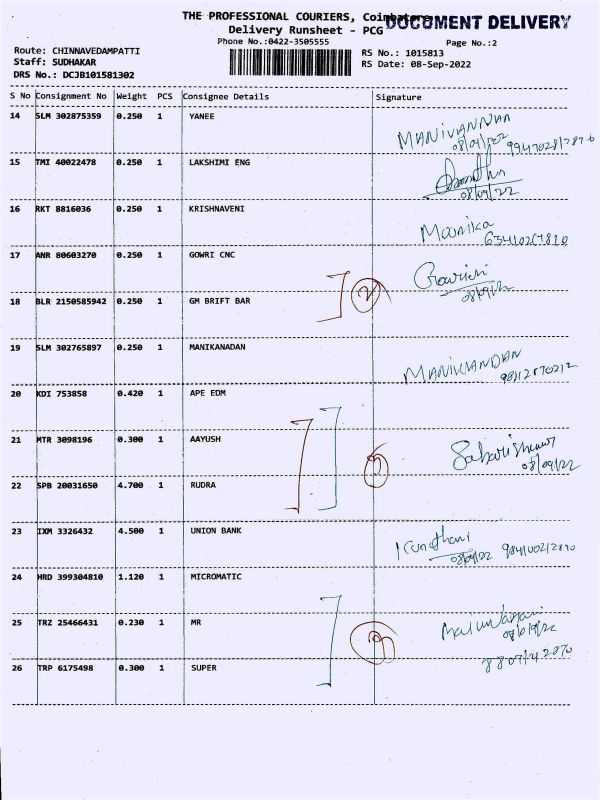 THE PROFESSIONAL COURIERS, Coimbatore
DOCUMENT DELIVERY
Delivery Runsheet - PCG
Phone No.:0422-3505555
Page No.:2
Route: CHINNAVEDAMPATTI
RS No.: 1015813
Staff: SUDHAKAR
RS Date: 08-Sep-2022
DRS No.: DCJB101581302
S No Consignment No Weight PCS Consignee Details Signature
14 SLM 302875359 0.250 1 YANEE
MANIVANNAN
15 TMI 40022478 0.250 1 LAKSHIMI ENG
08/09/22
16 RKT 8816036 0.250 1 KRISHNAVENI
Mounika
17 ANR 80603270 0.250 1 GOWRI CNC
08/09/22
2
18 BLR 2150585942 0.250 1 GM BRIFT BAR
19 SLM 302765897 0.250 1 MANIKANADAN
MANIKANDAN
20 KDI 753858 0.420 1 APE EDM
21 MTR 3098196 0.300 1 AAYUSH
08/09/22
22 SPB 20031650 4.700 1 RUDRA
23 IXM 3326432 4.500 1 UNION BANK
08/09/22
24 HRD 399304810 1.120 1 MICROMATIC
25 TRZ 25466431 0.230 1 MR
26 TRP 6175498 0.300 1 SUPER